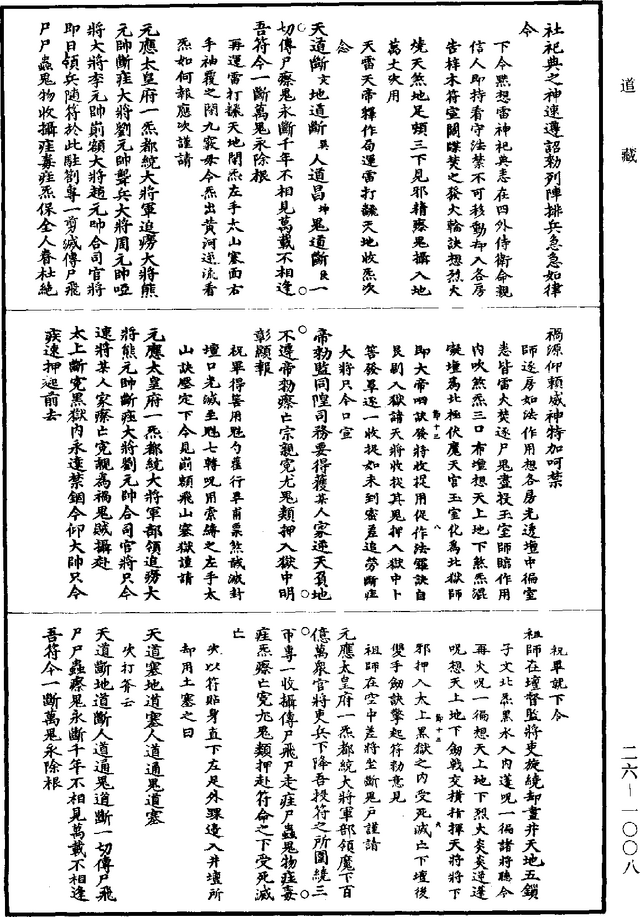 道藏
社祀典之神速遵詔勑列陣排兵急急如律
令
下令黙想雷神祀典悉在四外侍衛命親
信人即持看守法禁不可移動却入各房
告梓本符室關牒焚之發火輪訣想烈火
燒天煞地足頓三下見邪精瘵鬼攝入地
萬丈吹用
天雷天帝釋作局運雷打
念
天道斷地道斷人道昌鬼道斷一
切傳尸瘵鬼永斷千年不相見萬載不相逢
吾符令一斷萬鬼永除根
再運雷打天地間炁左手太山塞面右
手袖覆之閉九竅令炁出黄河逆流看
炁如何報應次謹請
元應太皇府一炁都統大將軍追癆大將熊
元帥斷疰大將劉元帥聾兵大將周元帥啞
將大將李元帥煎額大將趙元帥合司官將
即日領兵隨符於此駐劄專一剪滅傳尸飛
尸尸蟲鬼物收攝疰毒疰炁保全人眷杜絶
禍源仰頼威神特加呵禁
師逐房如法作用想各房光透壇中徧室
悉皆雷火焚逐尸鬼盡投玉室師暗作用
内吹煞炁三口布壇想天上地下煞炁混
凝壇爲北極伏魔天宫玉室化爲北獄師
即大帝四訣發將收捉用促作法罡訣自
艮剔入獄請天將收捉其鬼押入獄中卜
筶發罩逐一收捉如未到密差追勞斷疰
大將只今口宣
帝勑監同隍司務要得獲某人家逆天負地
不遵帝勑瘵亡宗親寃尤鬼類押入獄中明
彰顯報
祝畢得筶用魁勺𦊱行畢甫票煞誠滅封
壇口光滅至魁七轉呪用索縛之左手太
山訣壓定下令見煎額飛山塞獄謹請
元應太皇府一炁都統大將軍部領追癆大
將熊元帥斷疰大將劉元帥合司官將只今
速將某人家瘵亡寃親爲禍鬼賊攝赴
太上斷寃黑獄内永遠禁錮今仰大帥只今
疾速押廵前去
祝畢就下令
祖師在壇督監將吏旋繞却畫井天地五鎖
子文北炁黑水入内運呪一徧諸將聽令
再火呪一徧想天上地下烈火炎炎逆運
呪想天上地下劔戟交横指揮天將將下
邪押入太上黑獄之内受死滅亡下壇後
雙手劔訣擎起符勑意見
祖師在空中差將坐斷鬼户謹請
元應太皇府一炁都統大將軍部領魔下百
億萬衆官將吏兵下降吾投符之所圍繞三
帀專一收攝傳尸飛尸走疰尸蟲鬼物疰毒
疰炁瘵亡寃尤鬼類押赴符命之下受死滅
亡
次以符貼身直下左足外踝邊入井壇所
却用土塞之曰
天道塞地道塞人道通鬼道塞
次打斧云
天道斷地道斷人道通鬼道斷一切傳尸飛
尸尸蟲瘵鬼永斷千年不相見萬載不相逢
吾符令一斷萬鬼永除根
二六－一〇〇八